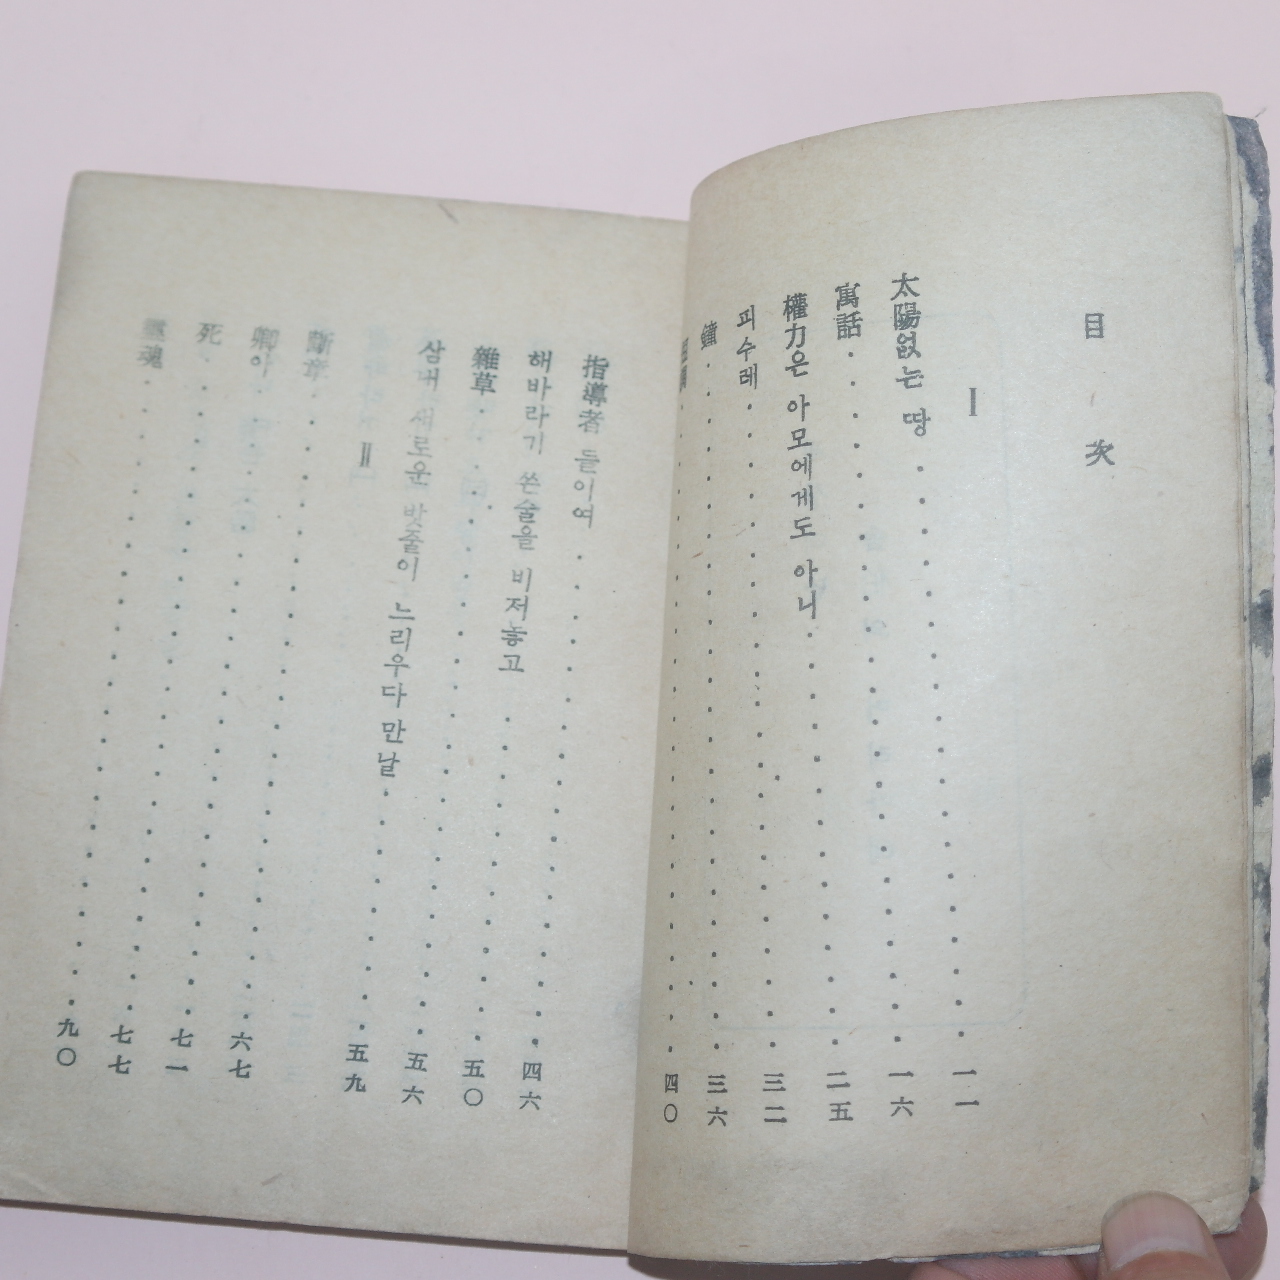 目次
I
太陽없는 땅 . . . . . . . . . . . 一一
寓話 . . . . . . . . . . . . . 一六
權力은 아모에게도 아니 . . . . . . . . 二五
피수레 . . . . . . . . . . . . 三二
鐘 . . . . . . . . . . . . . 三六
. . . . . . . . . . . . 四〇
指導者 들이여 . . . . . . . . . . 四六
해바라기 쓴술을 비저놓고 . . . . . . . 五〇
雜草 . . . . . . . . . . . . 五六
삼내 새로운 밧줄이 느리우다 만날 . . . . . . 五九
II
斷章 . . . . . . . . . . . . 六七
卿아 . . . . . . . . . . . . 七一
死 . . . . . . . . . . . . . 七七
靈魂 . . . . . . . . . . . . 九〇